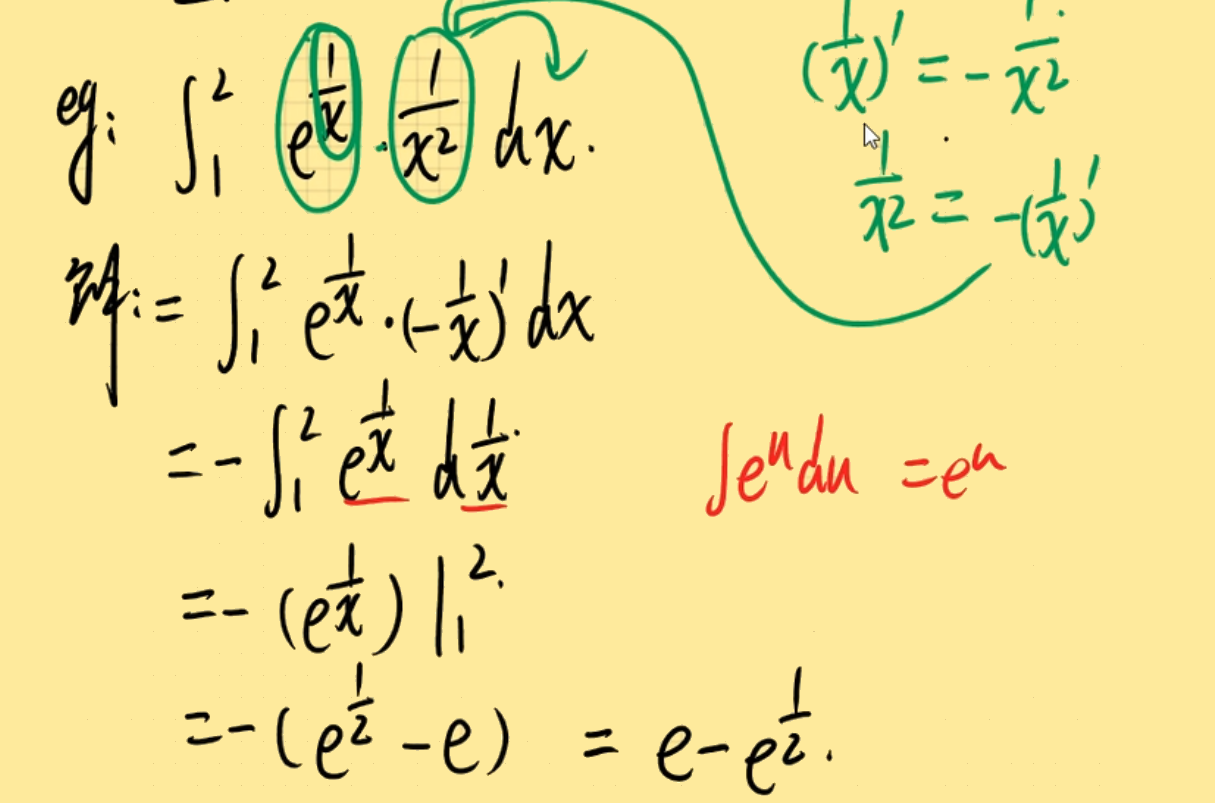 eg: ∫₁² e^(1/x) · 1/x² dx.
(1/x)' = - 1/x²
1/x² = -(1/x)'
解: = ∫₁² e^(1/x) · (-1/x)' dx
= - ∫₁² e^(1/x) d 1/x.
∫e^u du = e^u
= - (e^(1/x)) |₁².
= - (e^(1/2) - e) = e - e^(1/2).